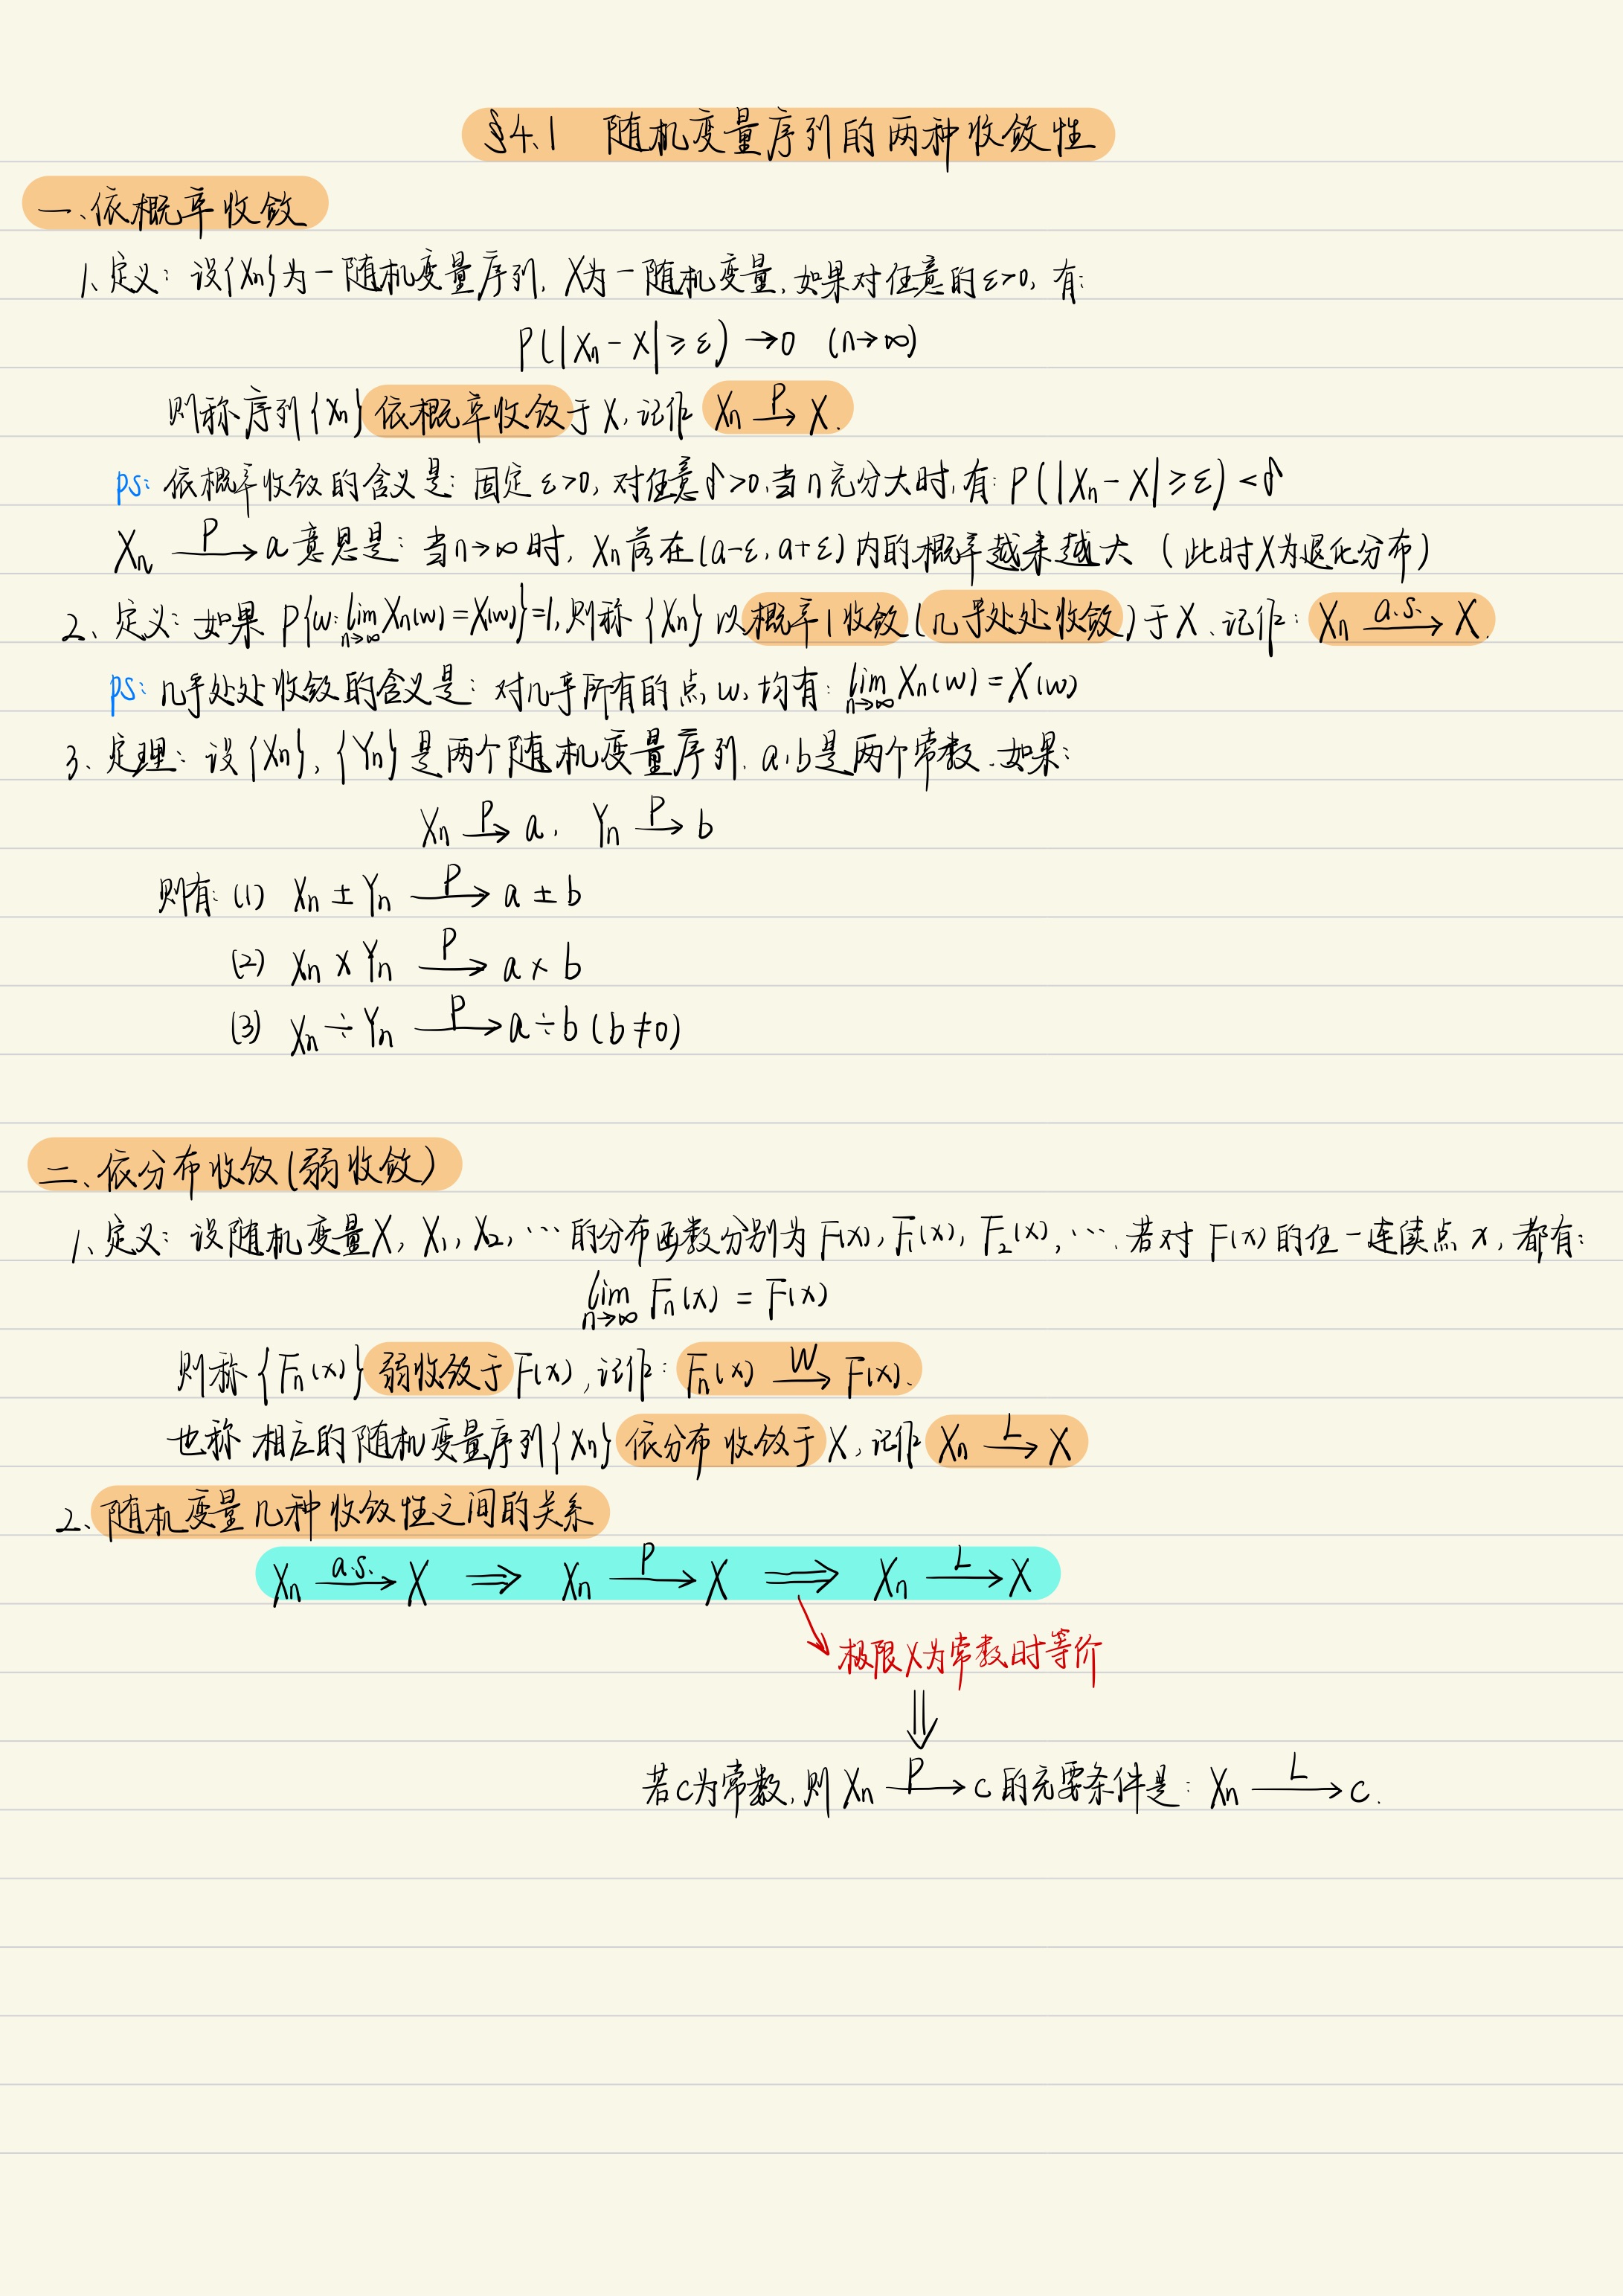 §4.1 随机变量序列的两种收敛性
一、依概率收敛
1、定义：设{Xn}为一随机变量序列，X为一随机变量，如果对任意的ε>0，有：
P(|Xn-X|≥ε)→0 (n→∞)
则称序列{Xn}依概率收敛于X，记作 Xn —P→ X.
ps：依概率收敛的含义是：固定ε>0，对任意δ>0，当n充分大时，有：P(|Xn-X|≥ε)<δ
Xn —P→ a 意思是：当n→∞时，Xn落在(a-ε，a+ε)内的概率越来越大（此时X为退化分布）
2、定义：如果 P{w: lim n→∞ Xn(w)=X(w)}=1，则称{Xn}以概率1收敛(几乎处处收敛)于X、记作：Xn —a.s.→ X.
ps：几乎处处收敛的含义是：对几乎所有的点w，均有：lim n→∞ Xn(w)=X(w)
3、定理：设{Xn}，{Yn}是两个随机变量序列，a，b是两个常数，如果：
Xn —P→ a， Yn —P→ b
则有：(1) Xn ± Yn —P→ a ± b
(2) Xn × Yn —P→ a × b
(3) Xn ÷ Yn —P→ a ÷ b (b≠0)
二、依分布收敛(弱收敛)
1、定义：设随机变量X，X₁，X₂，…的分布函数分别为F(x)，F₁(x)，F₂(x)，…，若对F(x)的任一连续点x，都有：
lim n→∞ Fn(x) = F(x)
则称{Fn(x)}弱收敛于F(x)，记作：Fn(x) —W→ F(x).
也称相应的随机变量序列{Xn}依分布收敛于X，记作 Xn —L→ X
2、随机变量几种收敛性之间的关系
Xn —a.s.→ X ⇒ Xn —P→ X ⇒ Xn —L→ X
极限X为常数时等价
⇓
若c为常数，则 Xn —P→ c 的充要条件是：Xn —L→ c.